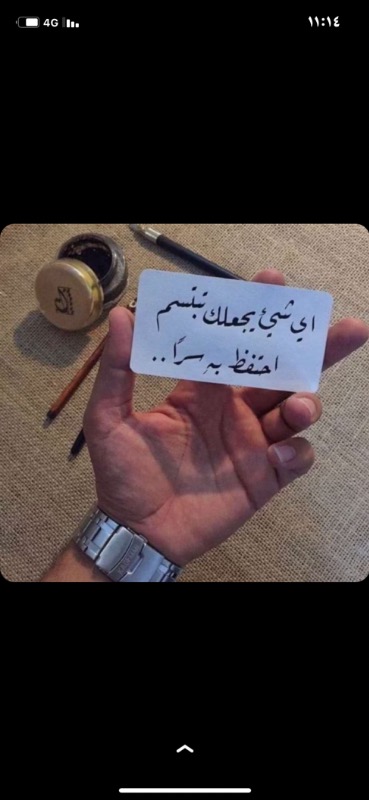 4G
١١:١٤
اي شيئ يجعلك تبتسم
احتفظ به سرًا..